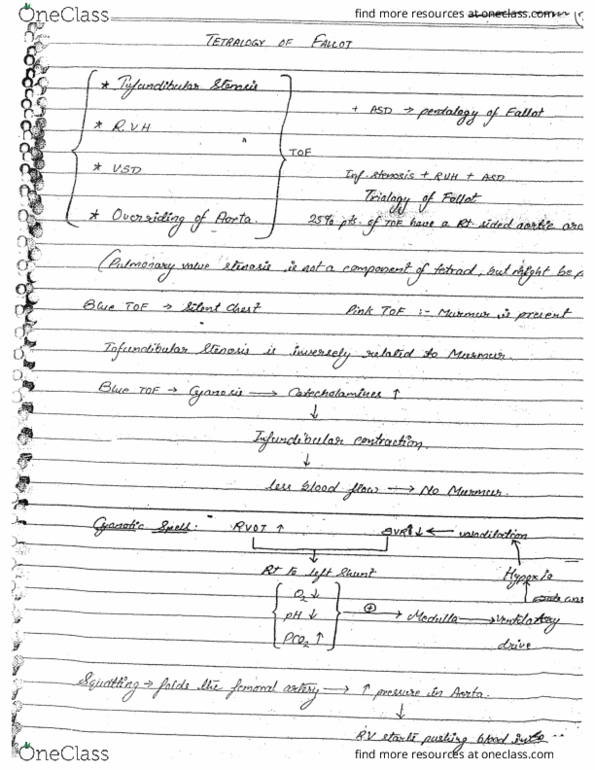 OneClass
find more resources at oneclass.com
TETRALOGY OF FALLOT
* Infundibular Stenosis
+ ASD → pentalogy of Fallot
* RVH
TOF
* VSD
Inf. stenosis + RVH + ASD
Trialogy of Fallot
* Overriding of Aorta.
25% pts. of TOF have a Rt sided aortic arc
(Pulmonary valve stenosis is not a component of tetrad, but might be p
Blue TOF → Silent Chest
Pink TOF :- Murmur is present
Infundibular Stenosis is inversely related to Murmur.
Blue TOF → Cyanosis → Catecholamines ↑
↓
Infundibular contraction.
↓
less blood flow → No Murmur.
Cyanotic Spell.
RVOT ↑
SVR ↓ ← vasodilation
Rt to left Shunt
Hypoxia
O2 ↓
pH ↓ ⊕ → Medulla → Ventilatory
PCO2 ↑
drive
Squatting → folds the femoral artery → ↑ pressure in Aorta.
↓
RV starts pushing blood into
OneClass
find more resources at oneclass.com